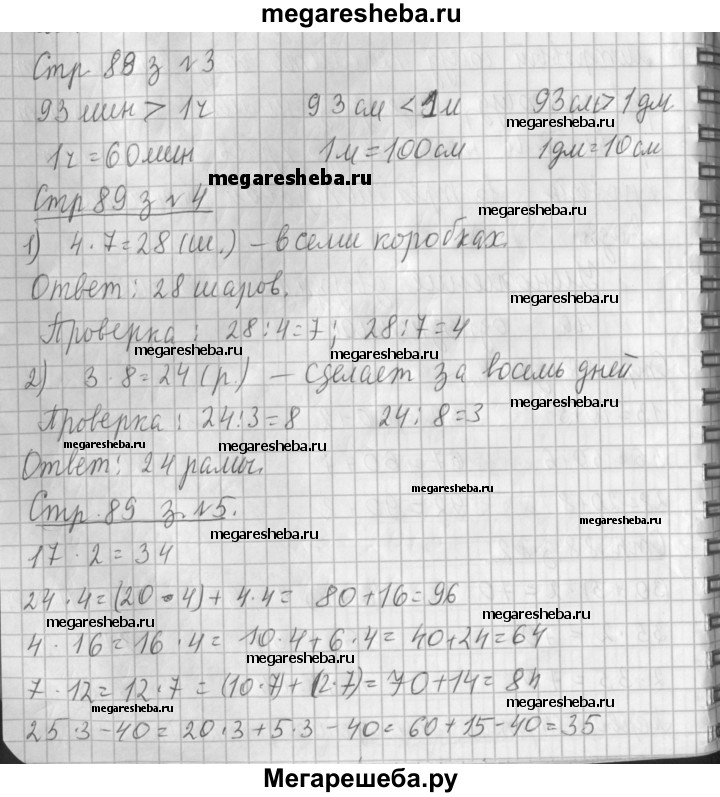 megaresheba.ru
Стр 89 з №3
93 мин > 1ч 93 см < 1м 93 см > 1дм
megaresheba.ru
1ч = 60 мин 1м = 100 см 1дм = 10 см
megaresheba.ru
Стр 89 з №4
megaresheba.ru
1) 4 · 7 = 28 (ш.) – в семи коробках.
megaresheba.ru
Ответ: 28 шаров.
megaresheba.ru
Проверка: 28 : 4 = 7; 28 : 7 = 4
megaresheba.ru megaresheba.ru
2) 3 · 8 = 24 (р.) – сделает за восемь дней
megaresheba.ru
Проверка: 24 : 3 = 8 24 : 8 = 3
megaresheba.ru megaresheba.ru
Ответ: 24 рамы.
megaresheba.ru
Стр. 89 з. №5.
megaresheba.ru megaresheba.ru
17 · 2 = 34
24 · 4 = (20 · 4) + 4 · 4 = 80 + 16 = 96
megaresheba.ru megaresheba.ru
4 · 16 = 16 · 4 = 10 · 4 + 6 · 4 = 40 + 24 = 64
megaresheba.ru
7 · 12 = 12 · 7 = (10 · 7) + (2 · 7) = 70 + 14 = 84
megaresheba.ru megaresheba.ru
25 · 3 – 40 = 20 · 3 + 5 · 3 – 40 = 60 + 15 – 40 = 35
Мегарешеба.ру